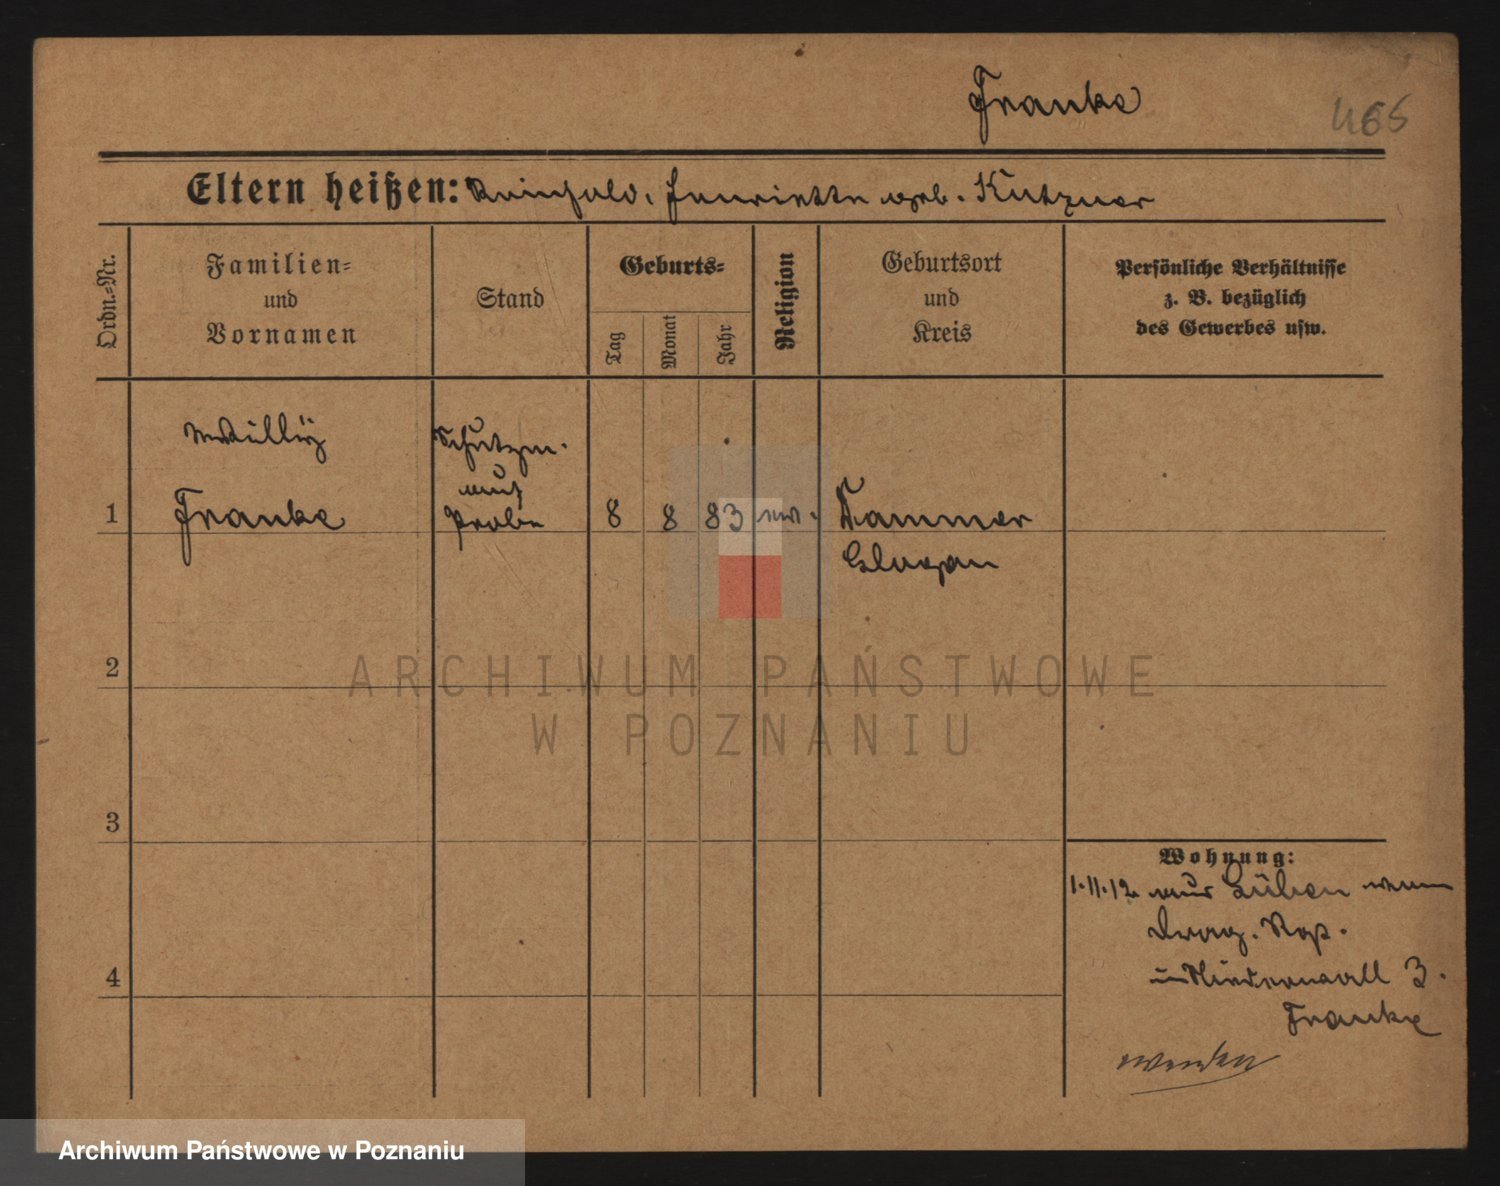 Franke
466
Eltern heißen: Reinhold, Henriette geb. Kutzner
Ordn.-Nr.
Familien-
und
Vornamen
Stand
Geburts-
Tag
Monat
Jahr
Religion
Geburtsort
und
Kreis
Persönliche Verhältnisse
z. B. bezüglich
des Gewerbes usw.
Willÿ
Schutzm.
auf
1 Franke Probe 8 8 83 ev. Dammer
Glogau
2
ARCHIWUM PAŃSTWOWE
W POZNANIU
3
Wohnung:
1.11.12 aus Lüben
Drag. Rgt.
Niederwall 3.
Franke
4
wenden
Archiwum Państwowe w Poznaniu